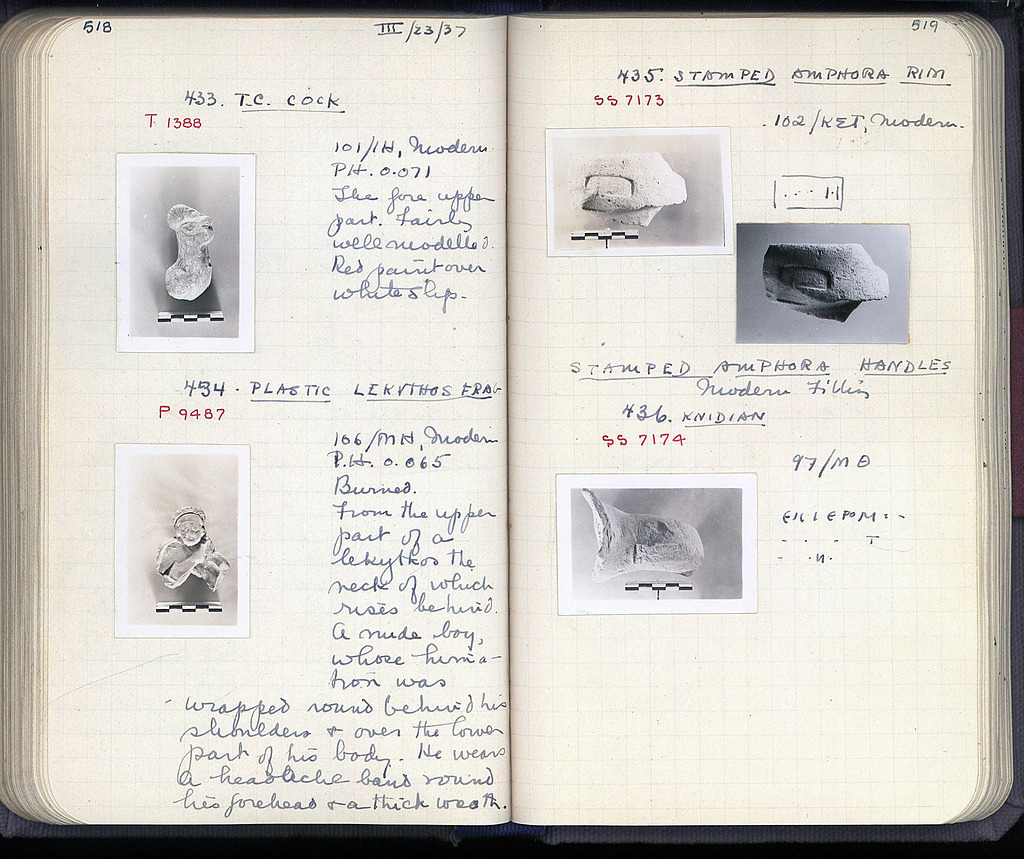 518
III/23/37
433. T.C. COCK
T 1388
101/IH, Modern.
PH. 0.071
The fore upper
part. Fairly
well modelled.
Red paint over
white slip.
434. PLASTIC LEKYTHOS FRAG
P 9487
106/MH, Modern
P.H. 0.065
Burned.
From the upper
part of a
lekythos the
neck of which
rises behind.
A nude boy,
whose hima-
tion was
wrapped round behind his
shoulders & over the lower
part of his body. He wears
a headache band round
his forehead & a thick wreath.
519
435. STAMPED AMPHORA RIM
SS 7173
102/KET, Modern.
STAMPED AMPHORA HANDLES
Modern Filling
436. KNIDIAN
SS 7174
97/MΘ